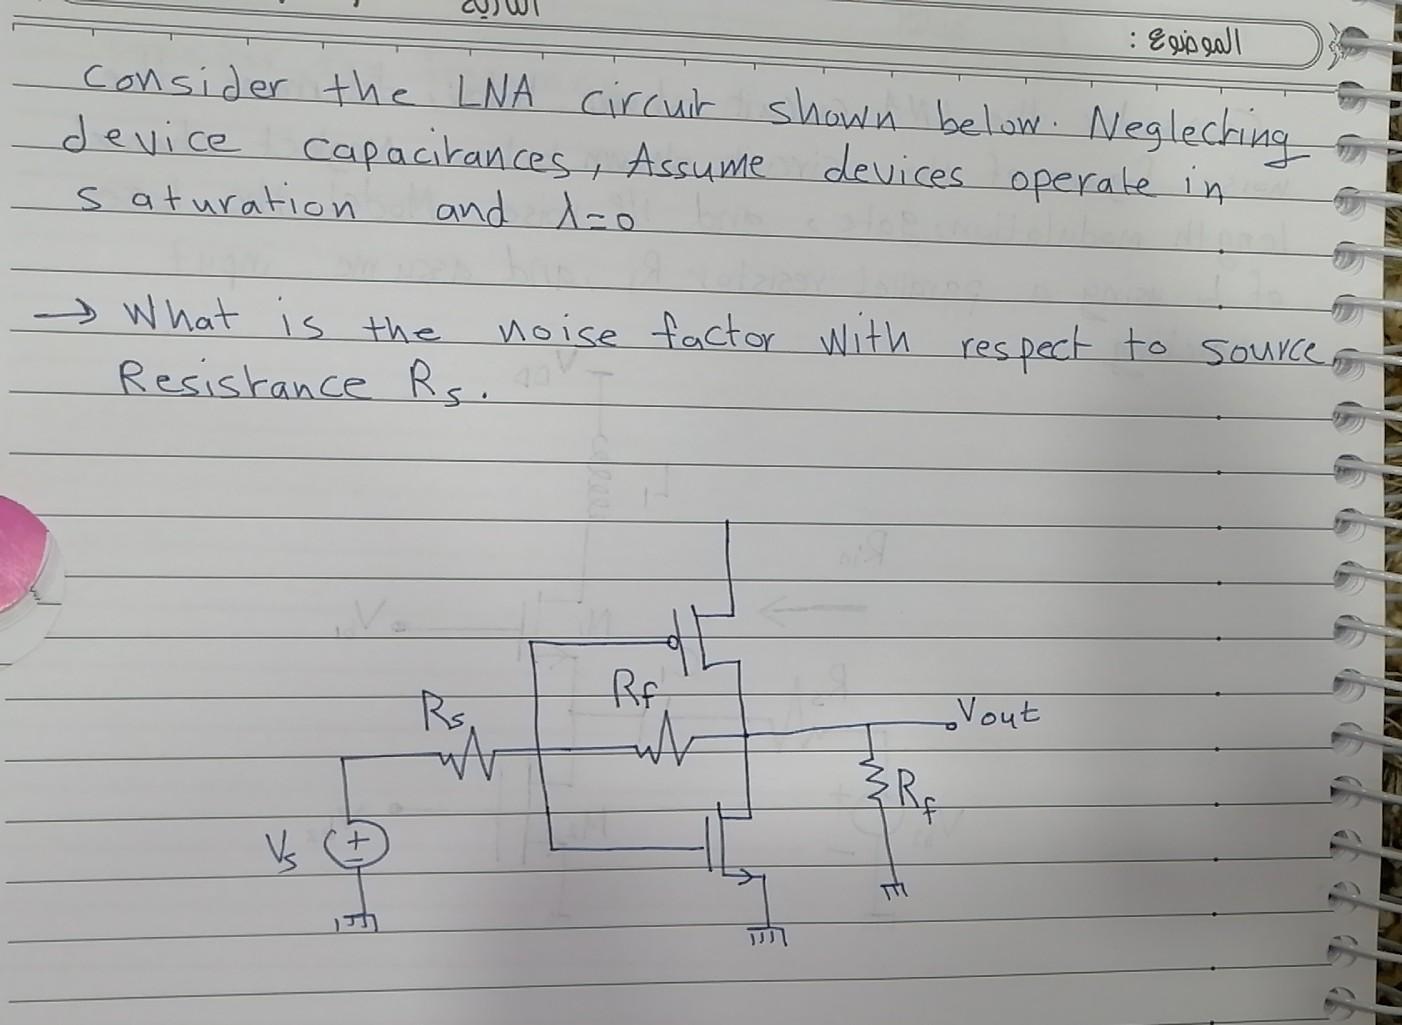 الموضوع :
consider the LNA circuit shown below. Neglecting
device capacitances, Assume devices operate in
saturation and λ=0
→ What is the noise factor with respect to source
Resistance Rs.
Rf
Rs
Vout
Rf
Vs
+
-